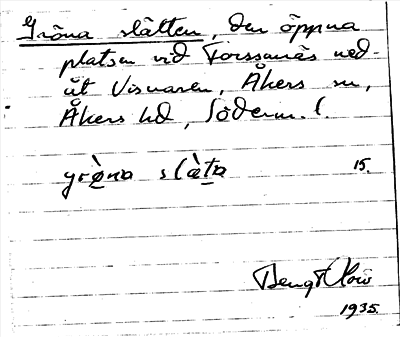 Gröna slätten, den öppna
platsen vid Forssanäs ned-
åt Visnaren, Åkers sn,
Åkers hd, Söderm. l.
gròna slàta 15.
Bengt
1935.